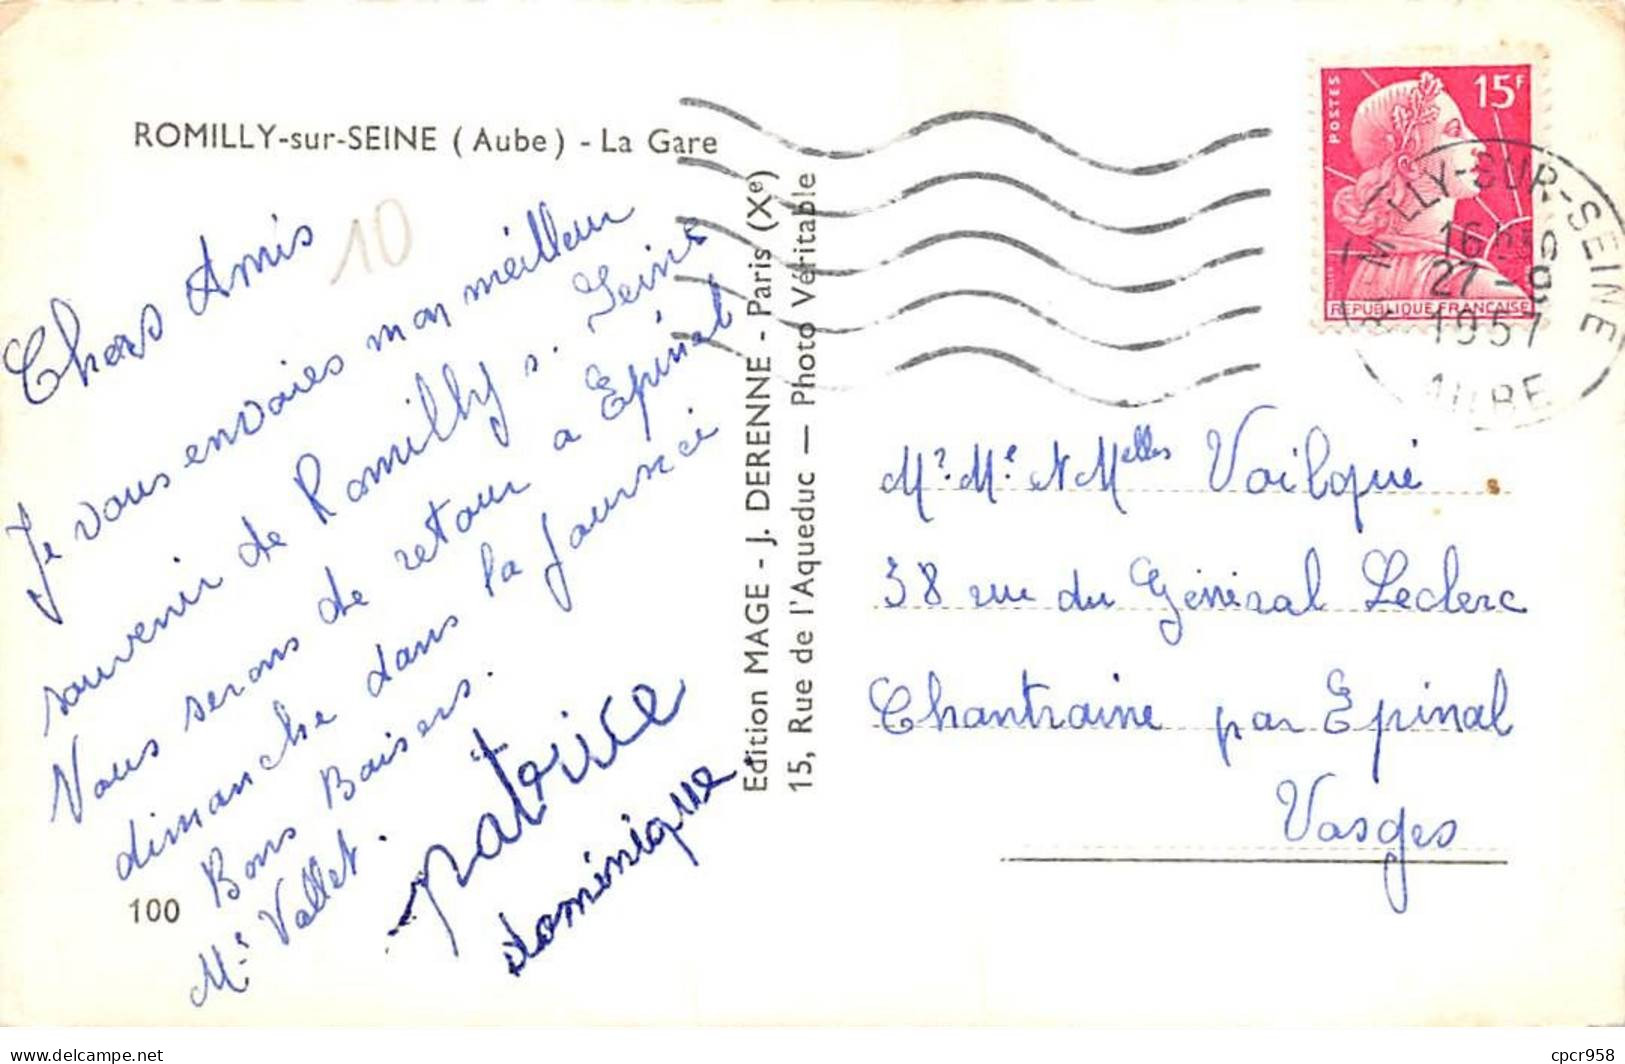 ROMILLY-sur-SEINE (Aube) - La Gare
10
Chers Amis
Je vous envoies mon meilleur
souvenir de Romilly s. Seine
Vous serons de retour a Epinal
dimanche dans la journéé
Bons Baisers.
Mr Vallet.
patrice
doménique.
100
Edition MAGE - J. DERENNE - Paris (Xe)
15, Rue de l'Aqueduc — Photo Véritable
POSTES
15F
REPUBLIQUE FRANÇAISE
ROMILLY-SUR-SEINE
16H30
27 -9
1957
AUBE
Mr. Me. et Melles Voilqué
38 rue du Général Leclerc
Chantraine par Epinal
Vosges
delcampe.net
cpcr958